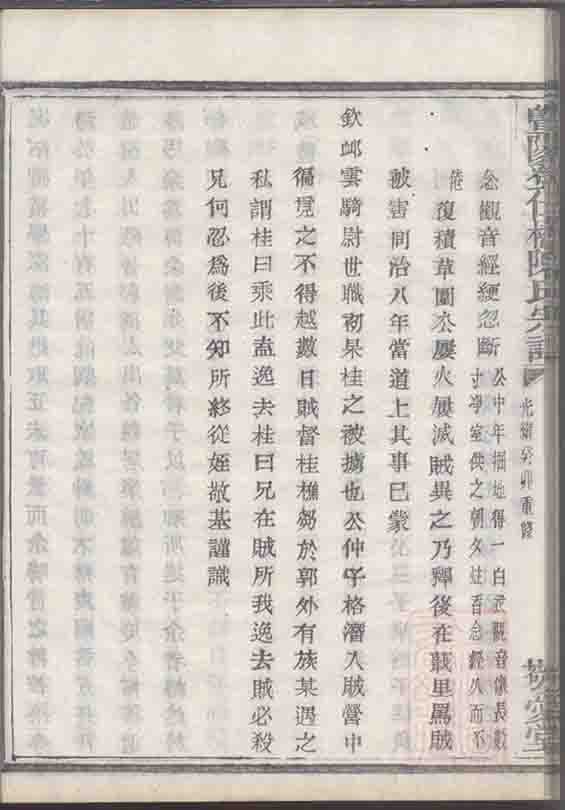 光緒癸卯重修
念觀音經綆忽斷公中年掘地得一白衣觀音像長數
寸淨室供之朝夕炷香念經久而不
倦
復積草圍永屢火屢滅賊異之乃釋後在戴里罵賊
被害同治八年當道上其事已蒙
欽卹雲騎尉世職初杲桂之被擄也公仲子格潛入賊營中
徧覓之不得越數日賊督桂樵芻於郭外有族某遇之
私謂桂曰乘此盍逸去桂曰兄在賊所我逸去賊必殺
兄何忍為後不知所終從姪敬基謹識